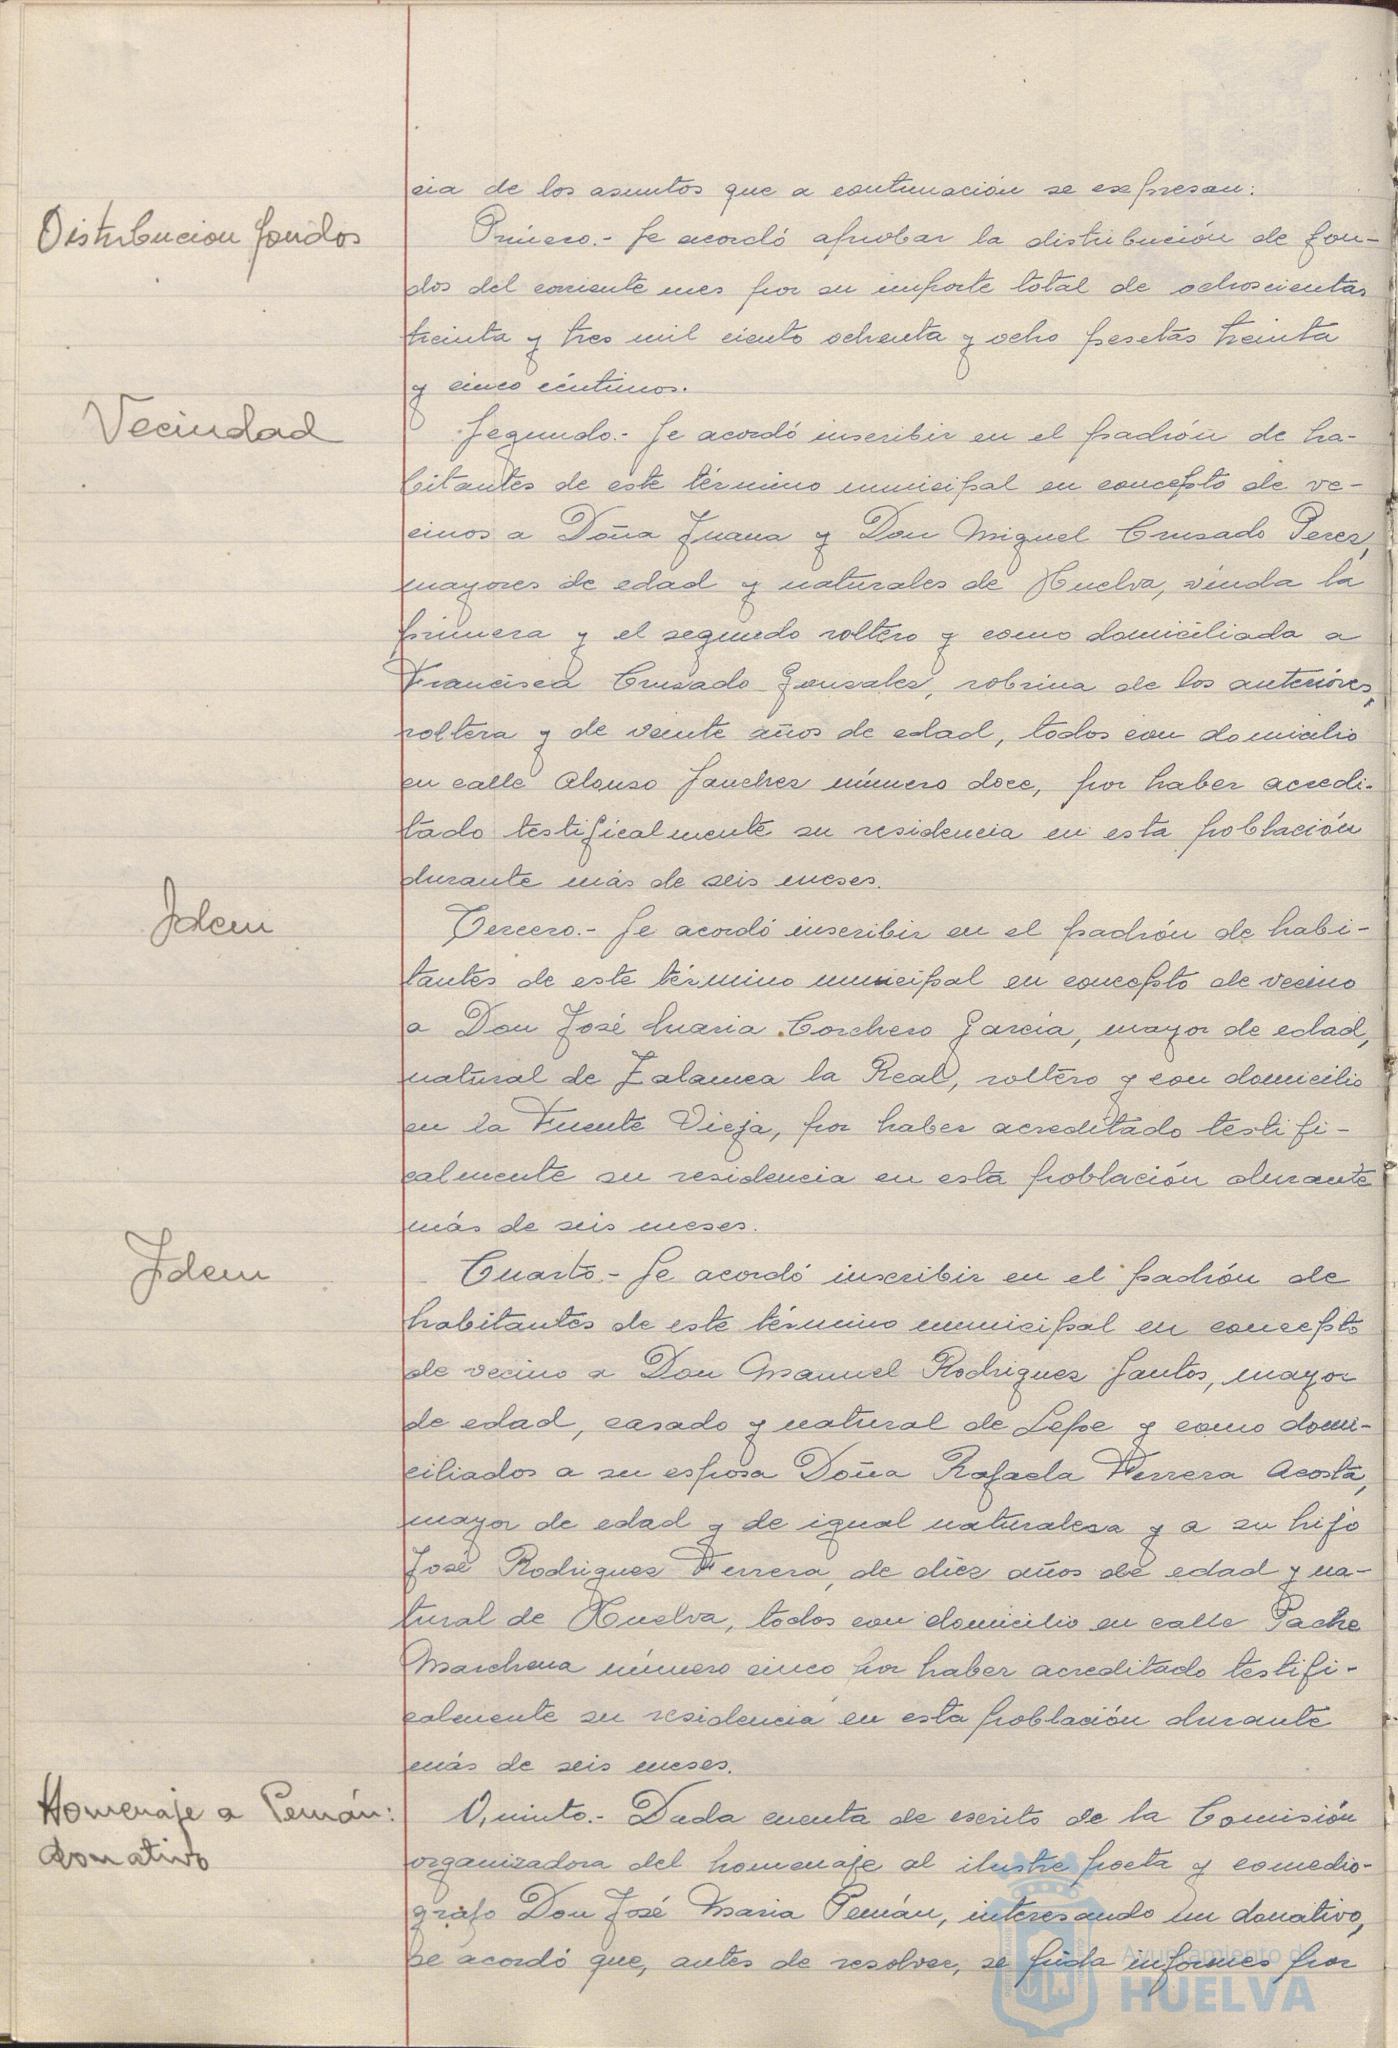 cia de los asuntos que a continuación se expresan:
Distribucion fondos
Primero.- Se acordó aprobar la distribución de fon-
dos del corriente mes por su importe total de ochoscientas
treinta y tres mil ciento ochenta y ocho pesetas treinta
y cinco céntimos.
Vecindad
Segundo.- Se acordó inscribir en el padrón de ha-
bitantes de este término municipal en concepto de ve-
cinos a Doña Juana y Don Miguel Crusado Perez,
mayores de edad y naturales de Huelva, viuda la
primera y el segundo soltero y como domiciliada a
Francisca Crusado Gonzalez, sobrina de los anteriores,
soltera y de veinte años de edad, todos con domicilio
en calle Alonso Sanchez número doce, por haber acredi-
tado testificalmente su residencia en esta población
durante más de seis meses.
Idem
Tercero.- Se acordó inscribir en el padrón de habi-
tantes de este término municipal en concepto de vecino
a Don José Maria Corchero Garcia, mayor de edad,
natural de Zalamea la Real, soltero y con domicilio
en la Fuente Vieja, por haber acreditado testifi-
calmente su residencia en esta población durante
más de seis meses.
Idem
Cuarto.- Se acordó inscribir en el padrón de
habitantes de este término municipal en concepto
de vecino a Don Manuel Rodriguez Santos, mayor
de edad, casado y natural de Lepe y como domi-
ciliados a su esposa Doña Rafaela Ferrera Acosta,
mayor de edad y de igual naturaleza y a su hijo
José Rodriguez Ferrera, de diez años de edad y na-
tural de Huelva, todos con domicilio en calle Padre
Marchena número cinco por haber acreditado testifi-
calmente su residencia en esta población durante
más de seis meses.
Homenaje a Pemán:
donativo
Quinto.- Dada cuenta de escrito de la Comisión
organizadora del homenaje al ilustre poeta y comedio-
grafo Don José Maria Pemán, interesando un donativo,
se acordó que, antes de resolver, se pida informes por
Ayuntamiento de
HUELVA